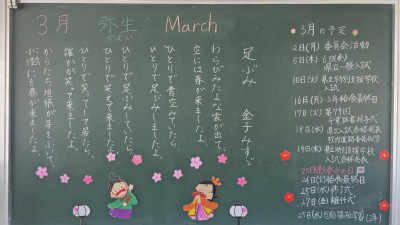 3月 弥生 March
やよい
足ぶみ 金子みすゞ
わらびみたよな雲が出て、
空には春が来ましたよ。
ひとりで青空みていたら、
ひとりで足ぶみしましたよ。
ひとりで足ぶみしていたら、
ひとりで笑えて来ましたよ。
ひとりで笑ってして居たら、
誰かが笑って来ましたよ。
からたち垣根が芽をふいて、
小径にも春が来ましたよ。
3月の予定
2日(月) 委員会活動
5日(木) 6日(金)
県立一般入試
10日(火) 県立特別支援学校
入試
16日(月) 3年給食最終日
17日(火) 第79回
卒業証書授与式
18日(水) 県立入試合格発表
19日(木) 県立特別支援学校
入試合格発表
20日(金) 春分の日
24日(火) 給食最終日
25日(水) 修了式
27日(金) 離任式